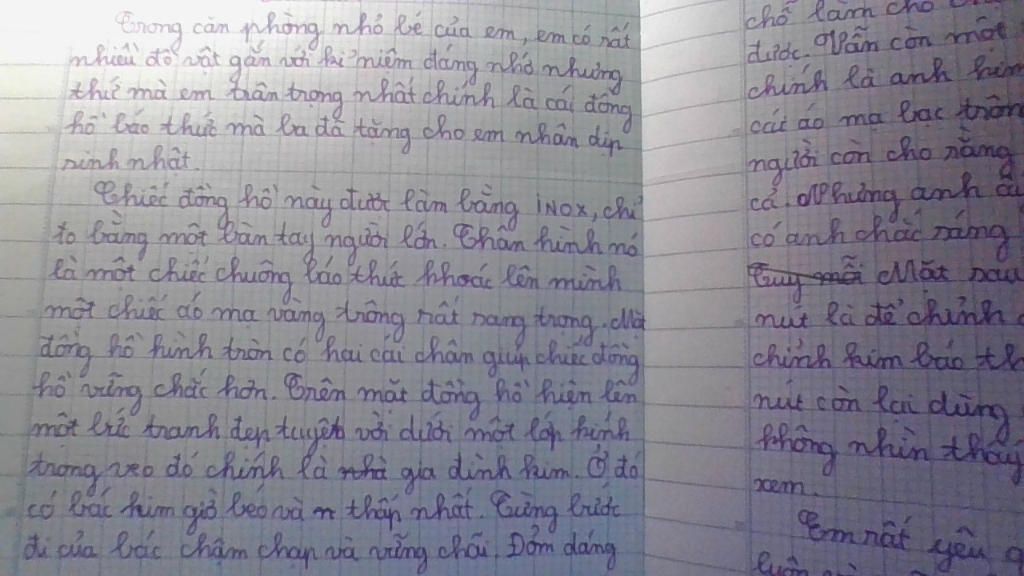 Trong căn phòng nhỏ bé của em, em có rất
nhiều đồ vật gắn với kỉ niệm đáng nhớ nhưng
thứ mà em trân trọng nhất chính là cái đồng
hồ báo thức mà ba đã tặng cho em nhân dịp
sinh nhật.
Chiếc đồng hồ này được làm bằng INOX, chỉ
to bằng một bàn tay người lớn. Thân hình nó
là một chiếc chuông báo thức khoác lên mình
một chiếc áo mạ vàng trông rất sang trọng. Mặt
đồng hồ hình tròn có hai cái chân giúp chiếc đồng
hồ vững chắc hơn. Trên mặt đồng hồ hiện lên
một bức tranh đẹp tuyệt vời dưới một lớp kính
trong veo đó chính là nhà gia đình kim. Ở đó
có bác kim giờ béo và thấp nhất. Từng bước
đi của bác chậm chạp và vững chãi. Đỏm dáng
chỗ làm cho
được. Vẫn còn một
chính là anh kim
cái áo mạ bạc trôn
người còn cho rằng
cả. Nhưng anh
có anh chắc rằng
Tuy mỗi Mặt sau
nút là để chỉnh
chỉnh kim báo th
nút còn lại dùng
không nhìn thấy
xem.
Em rất yêu
luôn